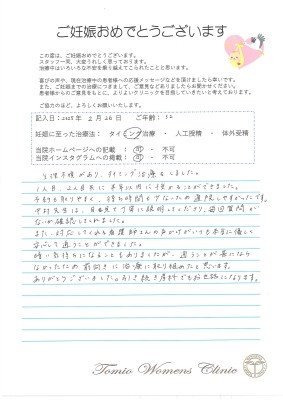 ご妊娠おめでとうございます
この度は、ご妊娠おめでとうございます。
スタッフ一同、大変うれしく思っております。
治療中はいろいろな不安を乗り越えてこられたことと思います。
喜びの声や、現在治療中の患者様への応援メッセージなどを頂けましたら幸いです。
また、ご妊娠までの治療につきまして、ご意見などありましたらお聞かせください。
患者様からのご意見をもとに、よりよいクリニックを目指していきたいと考えております。
ご協力のほど、よろしくお願いいたします。
記入日：2025年 2月26日 ご年齢：32
妊娠に至った治療法：タイミング治療 ・ 人工授精 ・ 体外受精
当院ホームページへの記載：可 ・ 不可
当院インスタグラムへの掲載：可 ・ 不可
生理不順があり、タイミング治療をしました。
1人目、2人目共に半年以内に授かることができました。
予約も取りやすく、待ち時間も少ないため通院しやすかったです。
中村先生は、目を見て丁寧に説明してくださり、毎回質問が
ないか確認してくれました。
また、対応してくれる看護師さんの声かけがいつも本当に優しく
安心して通うことができました。
暗い気持ちになることもありましたが、通うことが苦になら
なかったため前向きに治療に取り組めたと思います。
ありがとうございました。引き続き産科でもお世話になります。
Tomio Womens Clinic